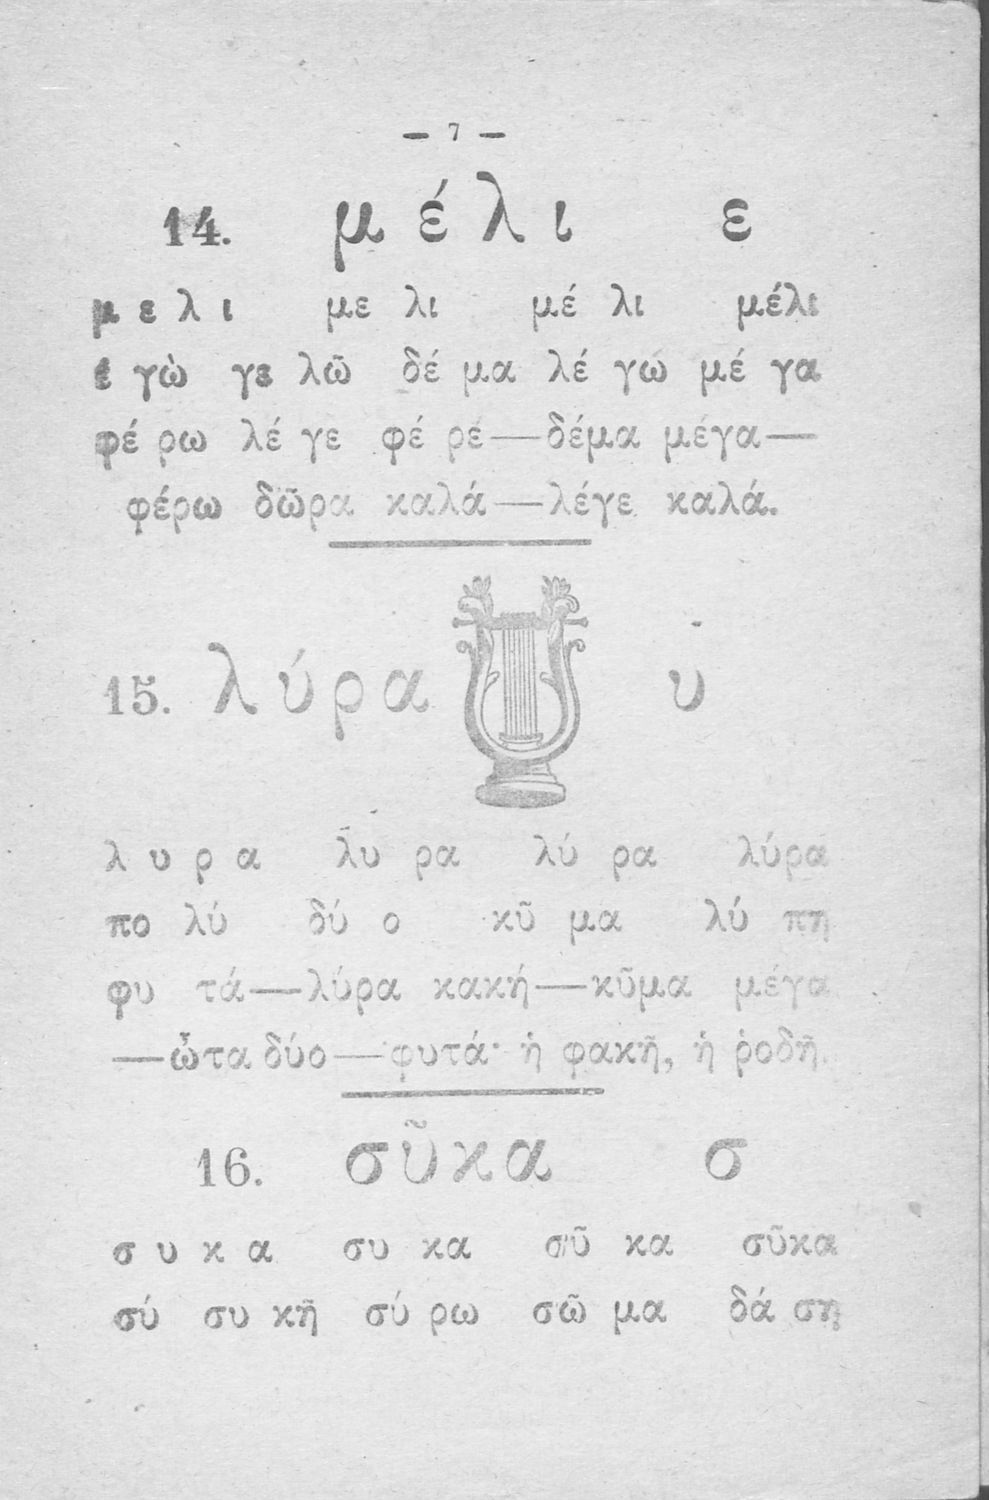 — 7 —
14. μέλι ε
μ ε λ ι με λι μέ λι μέλι
ἐ γὼ γε λῶ δέ μα λέ γω μέ γα
φέ ρω λέ γε φέ ρέ—δέμα μέγα—
φέρω δῶρα καλά—λέγε καλά.
15. λύρα υ
λ υ ρ α λυ ρα λύ ρα λύρα
πο λύ δύ ο κῦ μα λύ πη
φυ τά—λύρα κακή—κῦμα μέγα
—ὦτα δύο—φυτά· ἡ φακῆ, ἡ ῥοδῆ.
16. σῦκα σ
σ υ κ α συ κα σῦ κα σῦκα
σύ συ κῆ σύ ρω σῶ μα δά ση